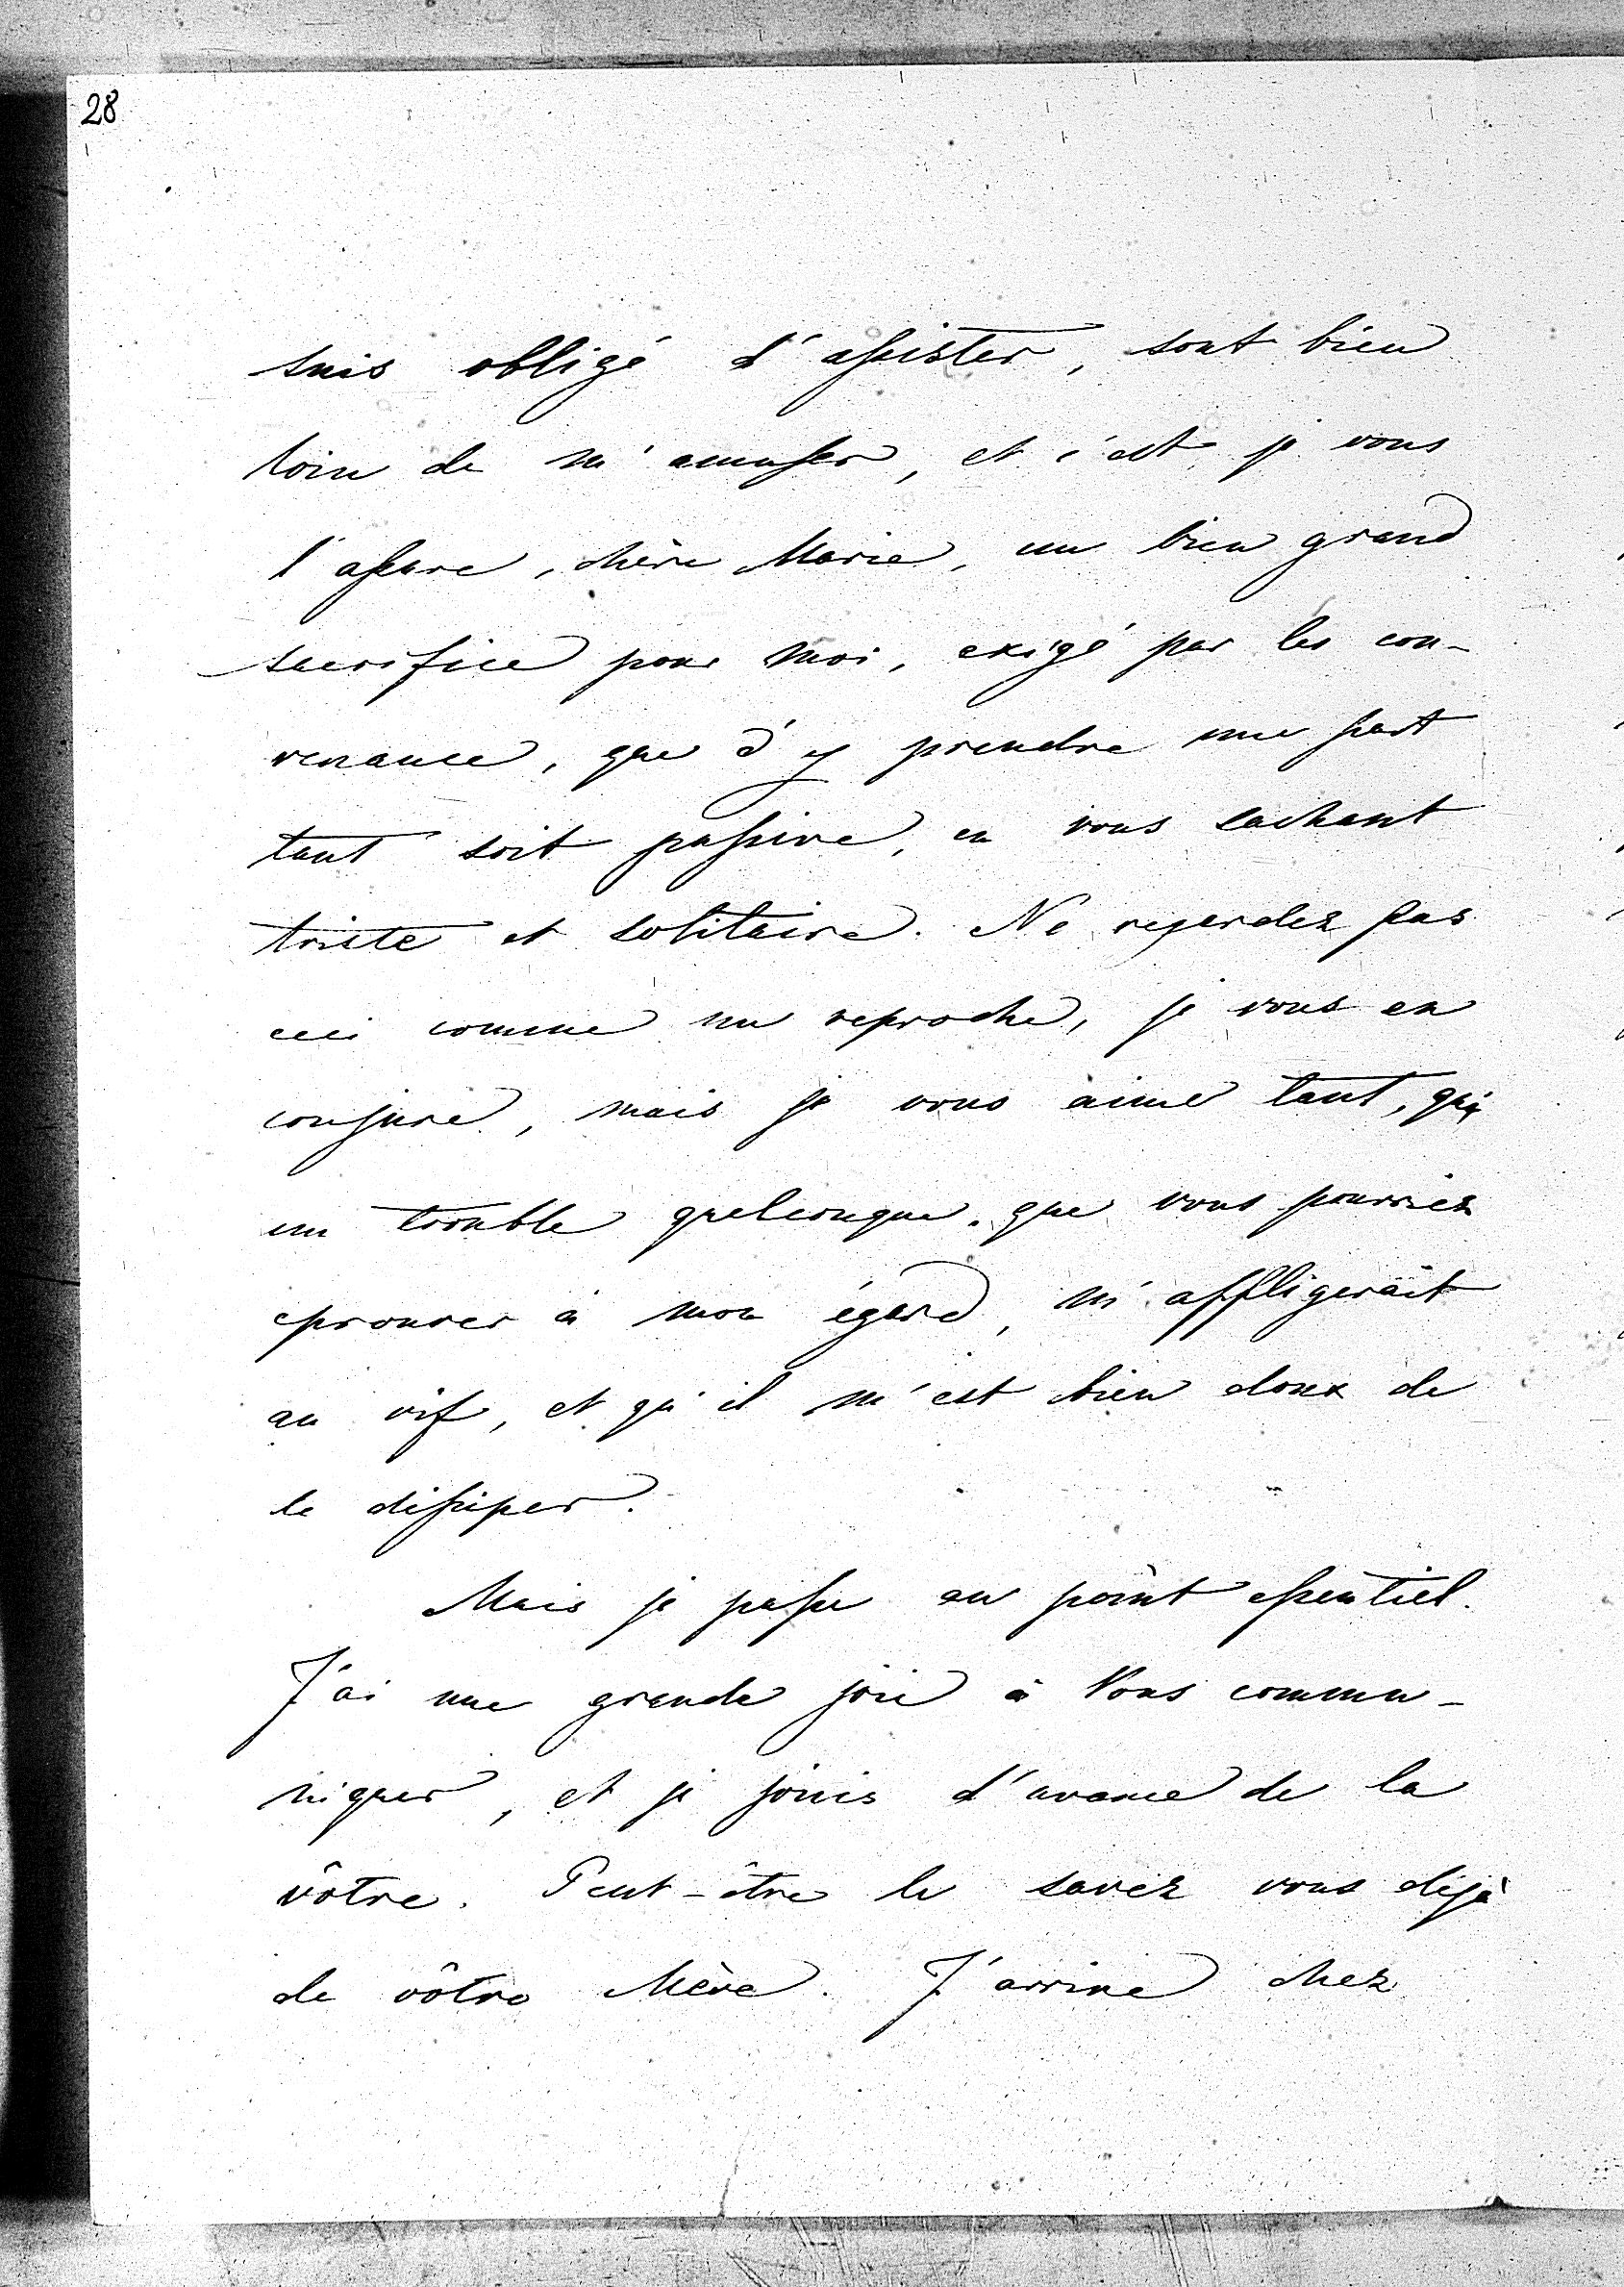 28
suis obligé d'assister, sont bien
loin de m'amuser, et c'est je vous
l'assure, chère Marie, un bien grand
sacrifice pour moi, exigé par les con-
venance, que d'y prendre une part
tant soit passive, en vous sachant
triste et solitaire. Ne regardez pas
ceci comme un reproche, je vous en
conjure, mais je vous aime tant, qu'
un trouble quelconque, que vous pourriez
eprouver à mon égard, m'affligerait
au vif, et qu'il m'est bien doux de
le dissiper.
Mais je passe au point essentiel.
J'ai une grande joie à Vous commu-
niquer, et je jouis d'avance de la
vôtre. Peut-être le savez vous déjà
de vôtre Mère. J'arrive chez